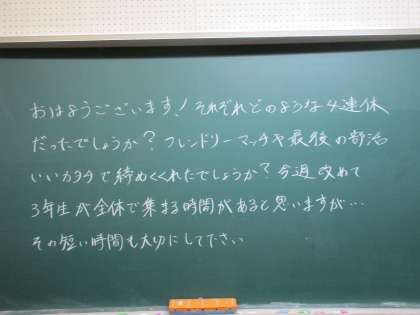 おはようございます！それぞれどのような4連休
だったでしょうか？フレンドリーマッチや最後の部活
いいカタチで締めくくれたでしょうか？今週改めて
3年生が全体で集まる時間があると思いますが…
その短い時間も大切にして下さい